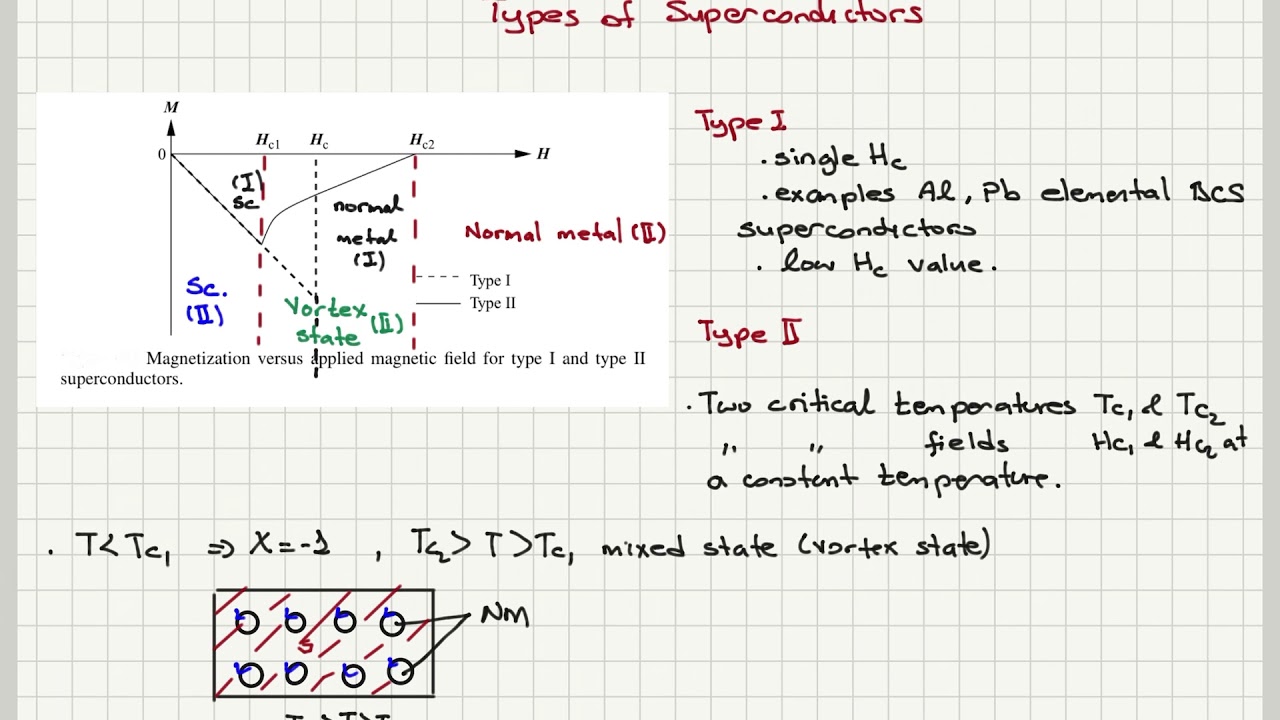 Types of Superconductors
M
H_c1 H_c H_c2
0 H
(I)
sc
normal
metal
(I)
Normal metal (II)
Sc.
(II)
Vortex
state (II)
Type I
Type II
Magnetization versus applied magnetic field for type I and type II
superconductors.
Type I
. single Hc
. examples Al, Pb elemental BCS
superconductors
. low Hc value.
Type II
. Two critical temperatures Tc1 & Tc2
" " fields Hc1 & Hc2 at
a constant temperature.
. T < Tc1 ⇒ X = -1 , Tc2 > T > Tc1 mixed state (vortex state)
NM
S